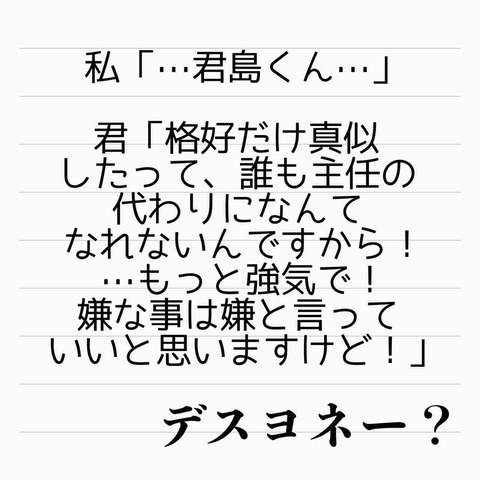 私「…君島くん…」
君「格好だけ真似
したって、誰も主任の
代わりになんて
なれないんですから！
…もっと強気で！
嫌な事は嫌と言って
いいと思いますけど！」
デスヨネー？